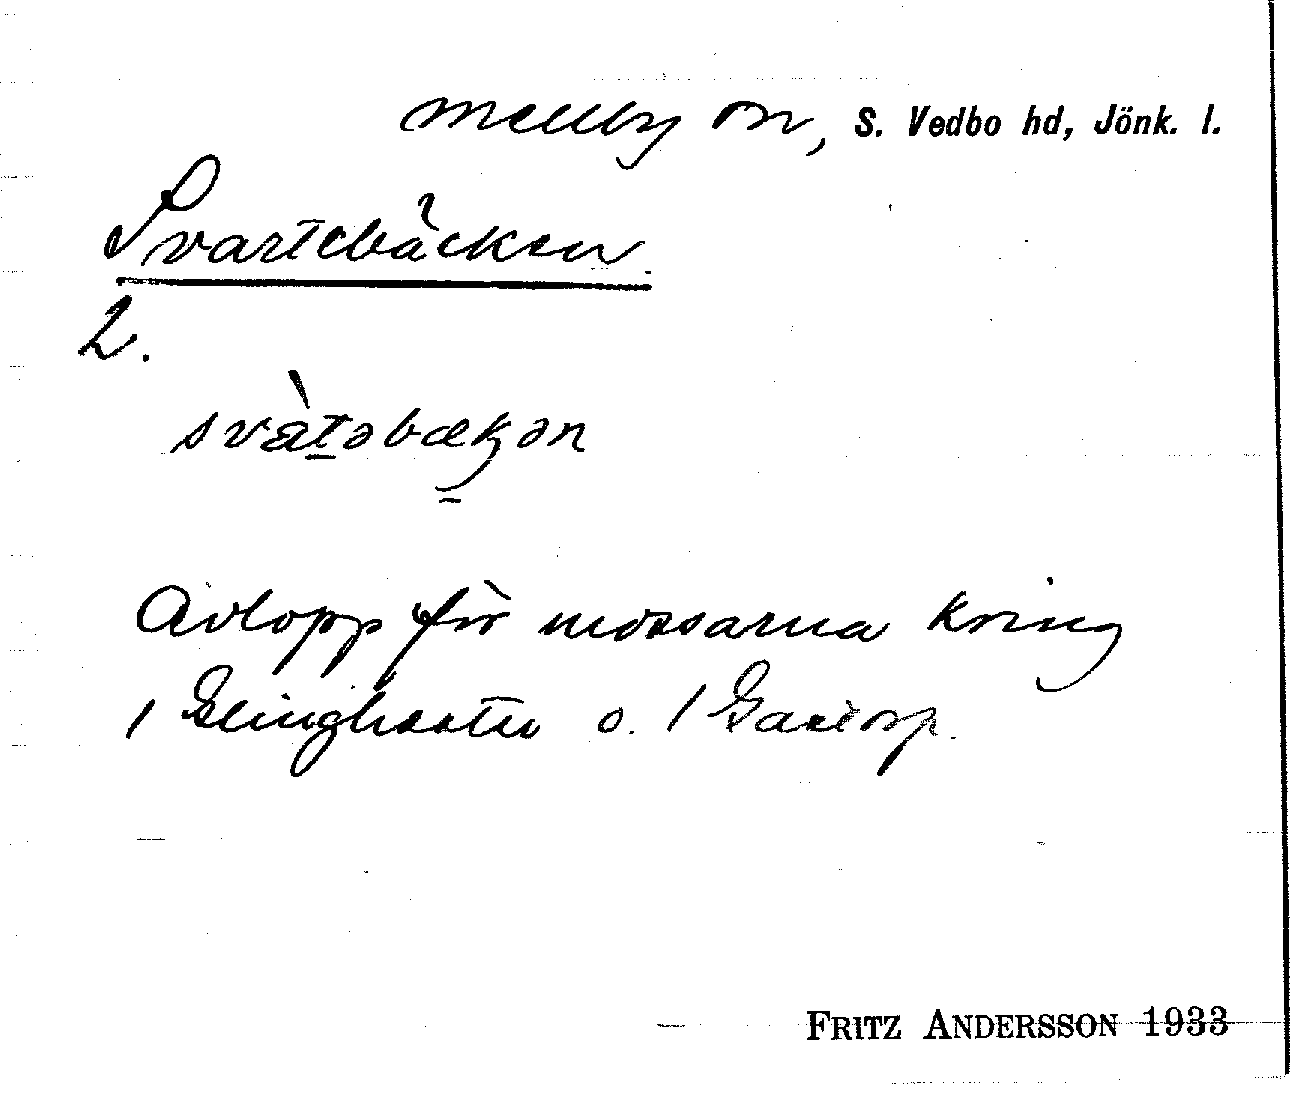 Mellby sn, S. Vedbo hd, Jönk. l.
Svartebäcken
2.
svàtəbækən
Avlopp för mossarna kring
/ o. /
FRITZ ANDERSSON 1933